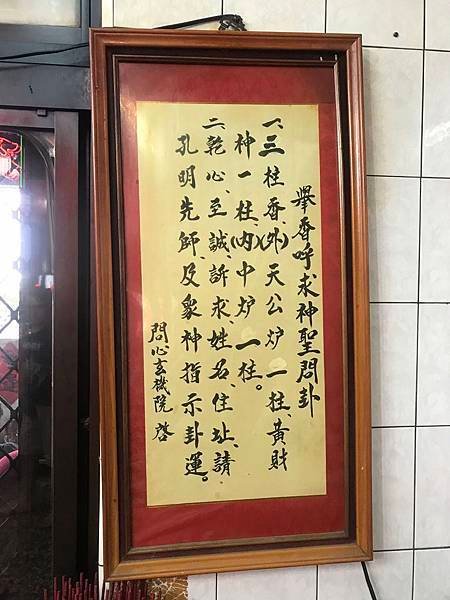 舉香呼求神聖問卦
一、三柱香、(外)天公炉一柱、黃財
神一柱、(內)中炉一柱。
二、乾心、至誠、訴求、姓名、住址、請
孔明先師、及眾神指示卦運。
問心玄機院啓